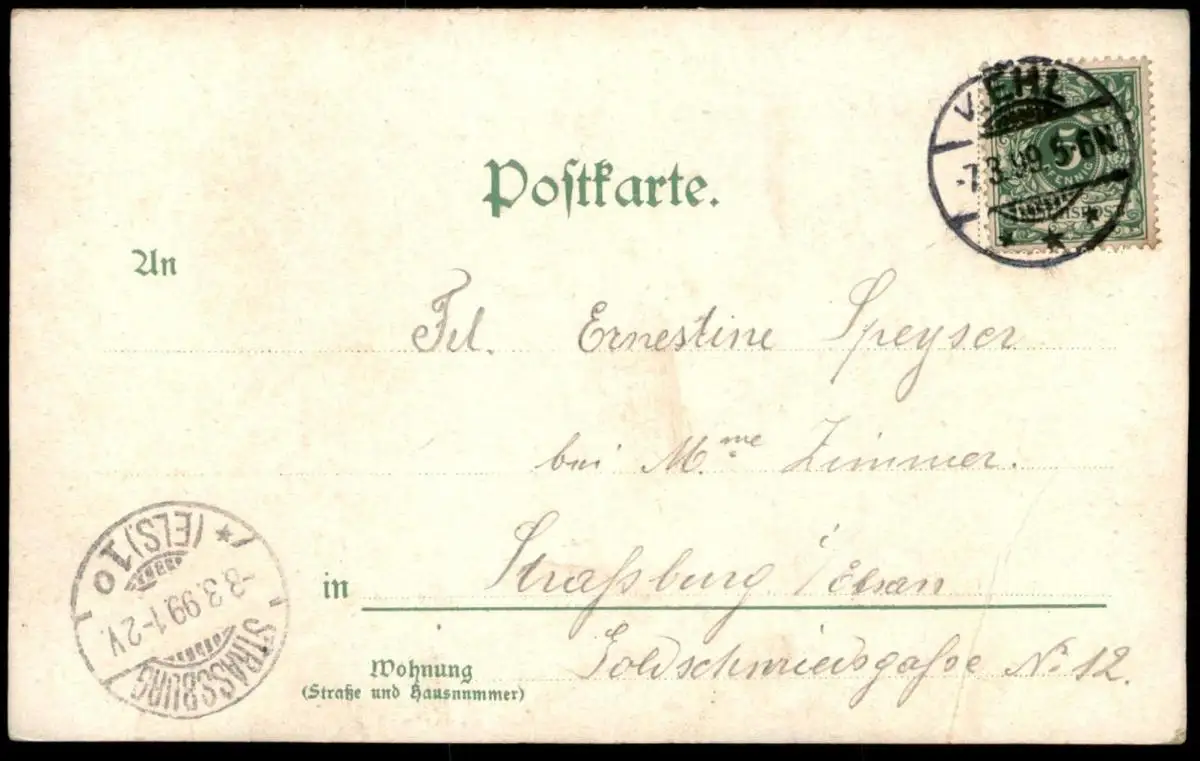 KEHL
-7.3.99. 5-6N.
5
PFENNIG
REICHSPOST
Postkarte.
An
Frl. Ernestine Speyser
bei Mme Zimmer.
in Straßburg i/Elsan
Goldschmiedsgaße No 12.
Wohnung
(Straße und Hausnummer)
STRASSBURG
(ELS) 1
8.3.99.1-2V.